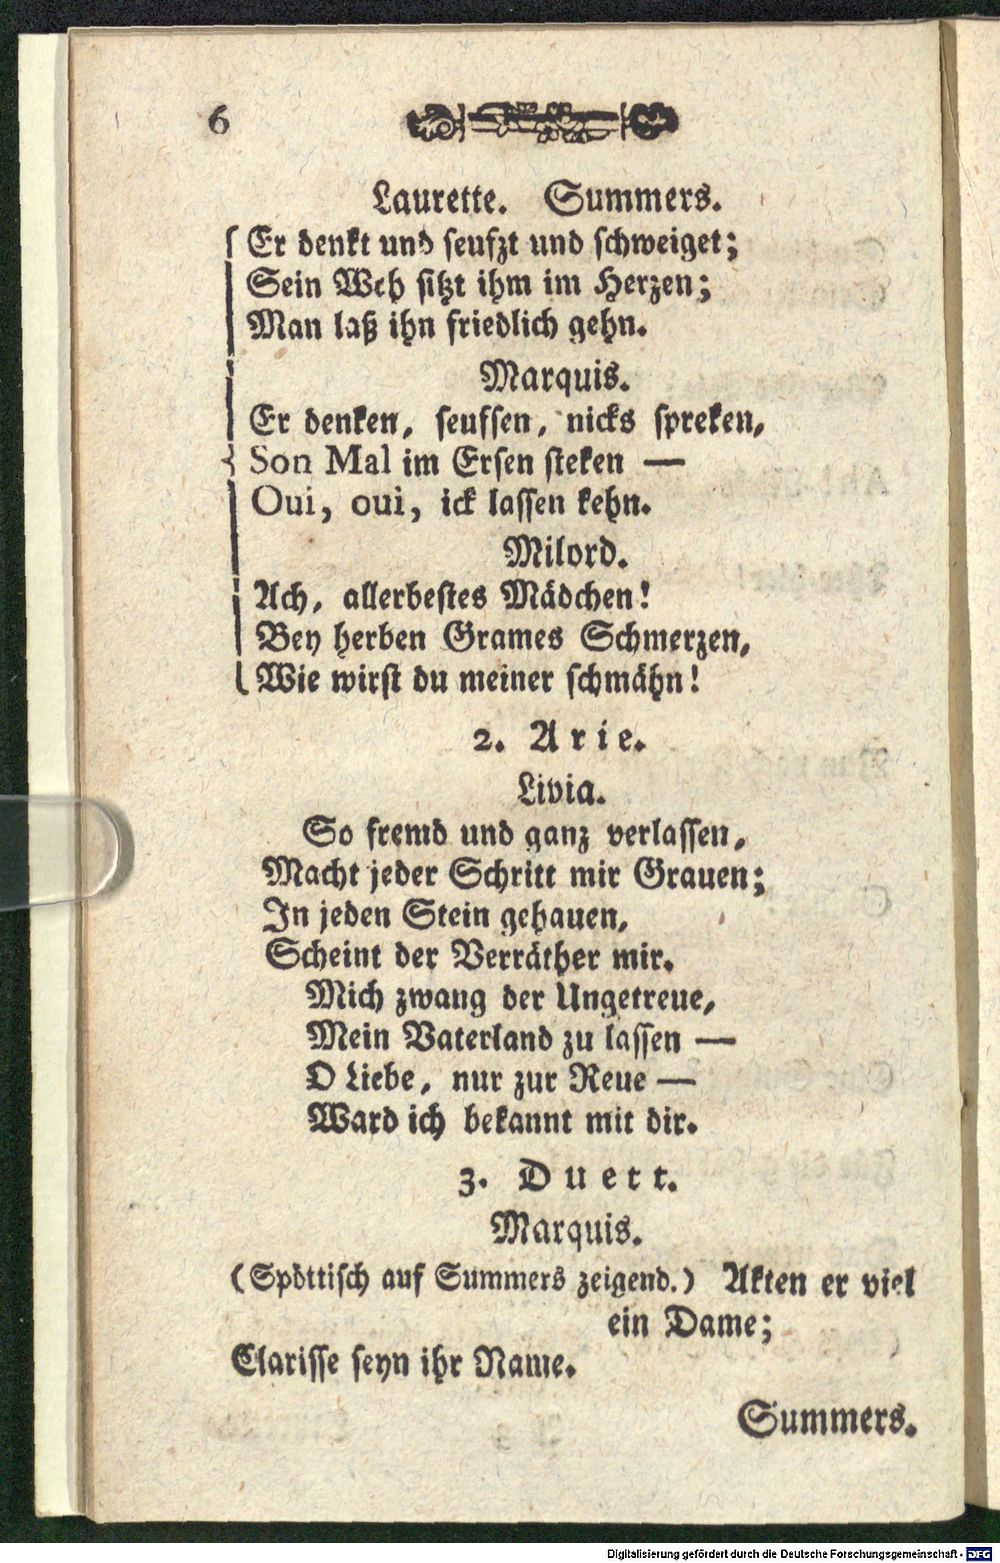 6
Laurette. Summers.
Er denkt und seufzt und schweiget;
Sein Weh sitzt ihm im Herzen;
Man laß ihn friedlich gehn.
Marquis.
Er denken, seufsen, nicks spreken,
Son Mal im Ersen steken —
Oui, oui, ick lassen kehn.
Milord.
Ach, allerbestes Mädchen!
Bey herben Grames Schmerzen,
Wie wirst du meiner schmähn!
2. Arie.
Livia.
So fremd und ganz verlassen,
Macht jeder Schritt mir Grauen;
In jeden Stein gehauen,
Scheint der Verräther mir.
Mich zwang der Ungetreue,
Mein Vaterland zu lassen —
O Liebe, nur zur Reue —
Ward ich bekannt mit dir.
3. Duett.
Marquis.
(Spöttisch auf Summers zeigend.) Akten er viel
ein Dame;
Clarisse seyn ihr Name.
Summers.
Digitalisierung gefördert durch die Deutsche Forschungsgemeinschaft - DFG